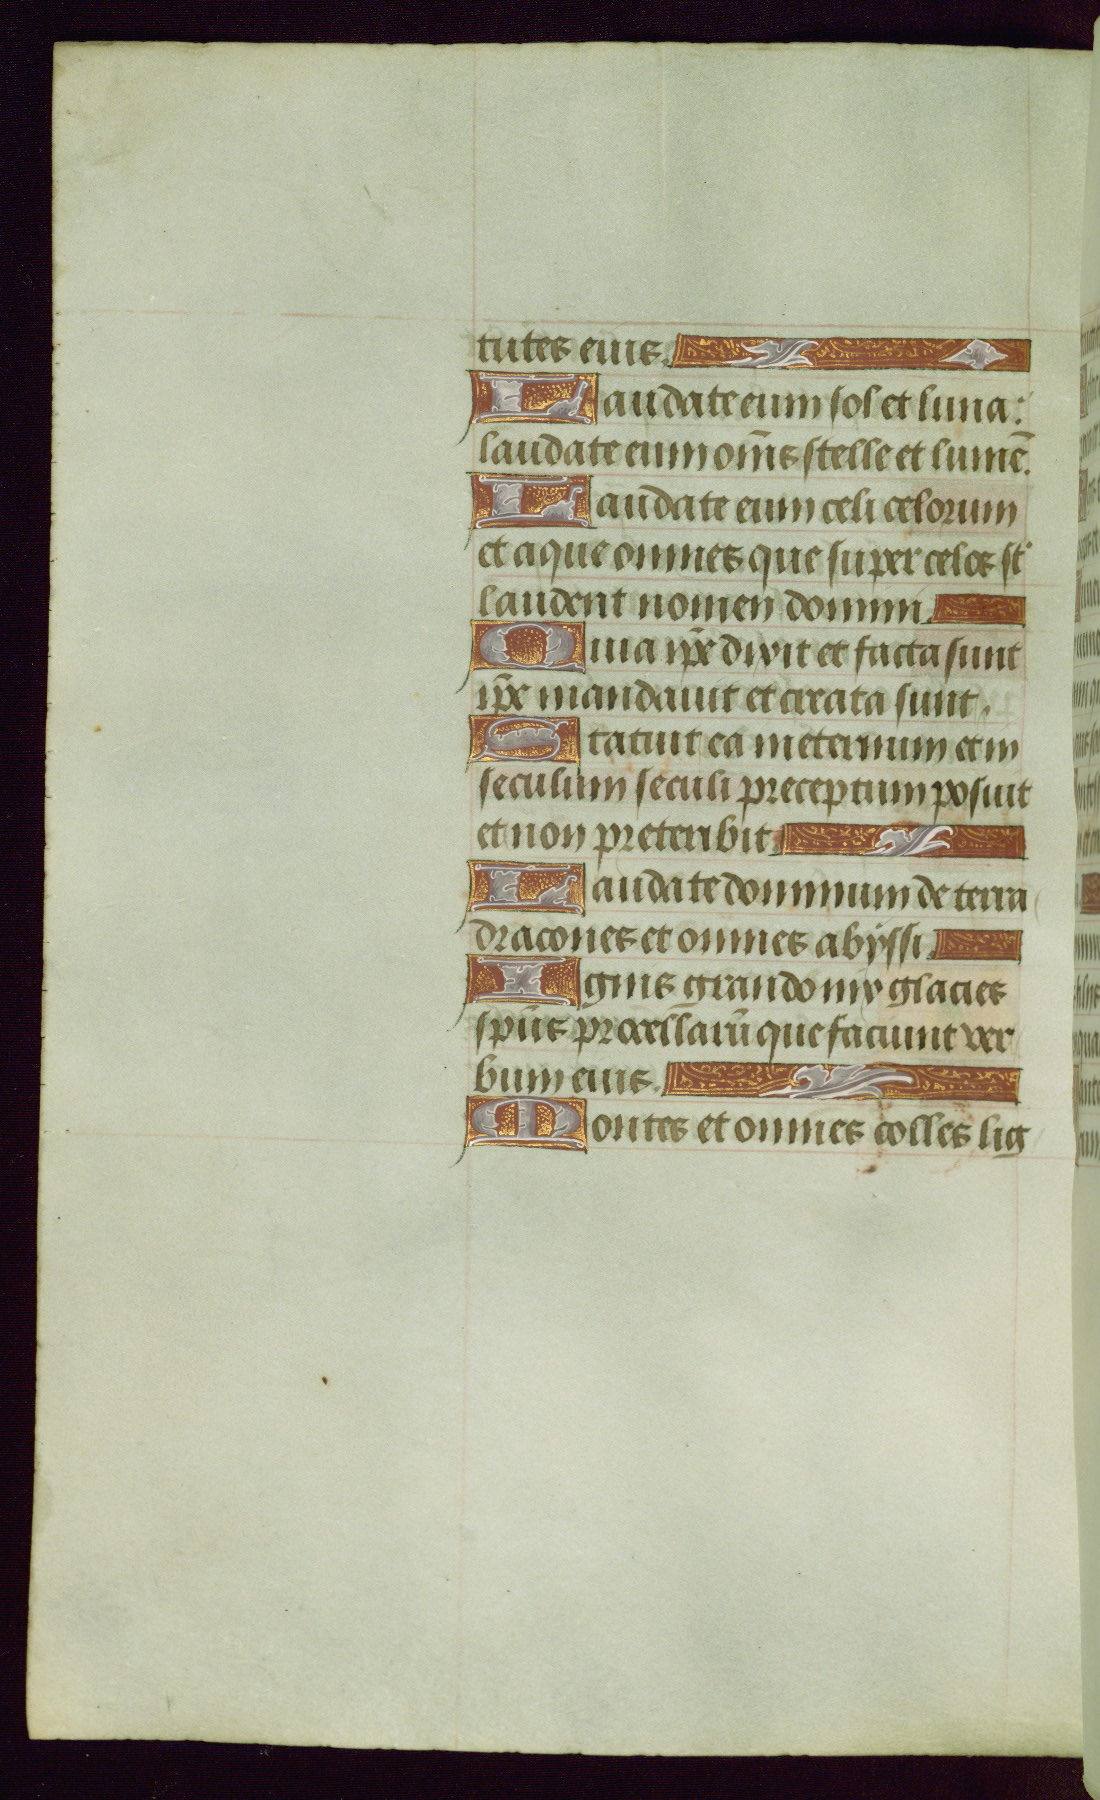 tutes eius.
Laudate eum sol et luna:
laudate eum om̄s stelle et lumē.
Laudate eum celi celorum
et aque omnes que super celos st̄
laudent nomen domini.
Quia ip̄e dixit et facta sunt
ip̄e mandauit et creata sunt.
Statuit ea in eternum et in
seculum seculi preceptum posuit
et non preteribit.
Laudate dominum de terra
dracones et omnes abyssi.
Ignis grando nix glacies
sp̄us procellarū que faciunt ver
bum eius.
Montes et omnes colles lig